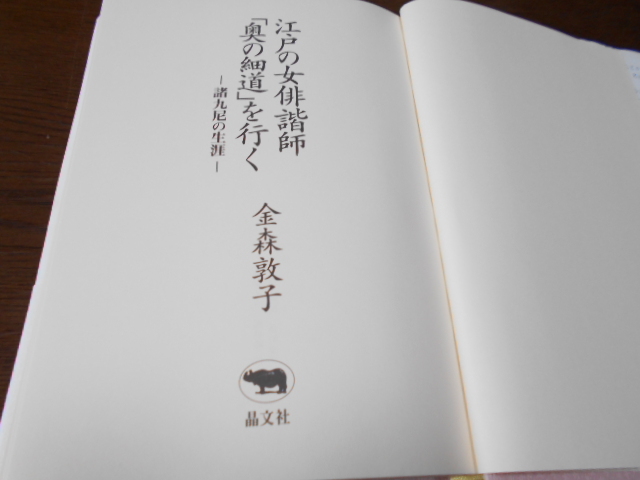 江戸の女俳諧師
「奥の細道」を行く
―諸九尼の生涯―
金森敦子
晶文社